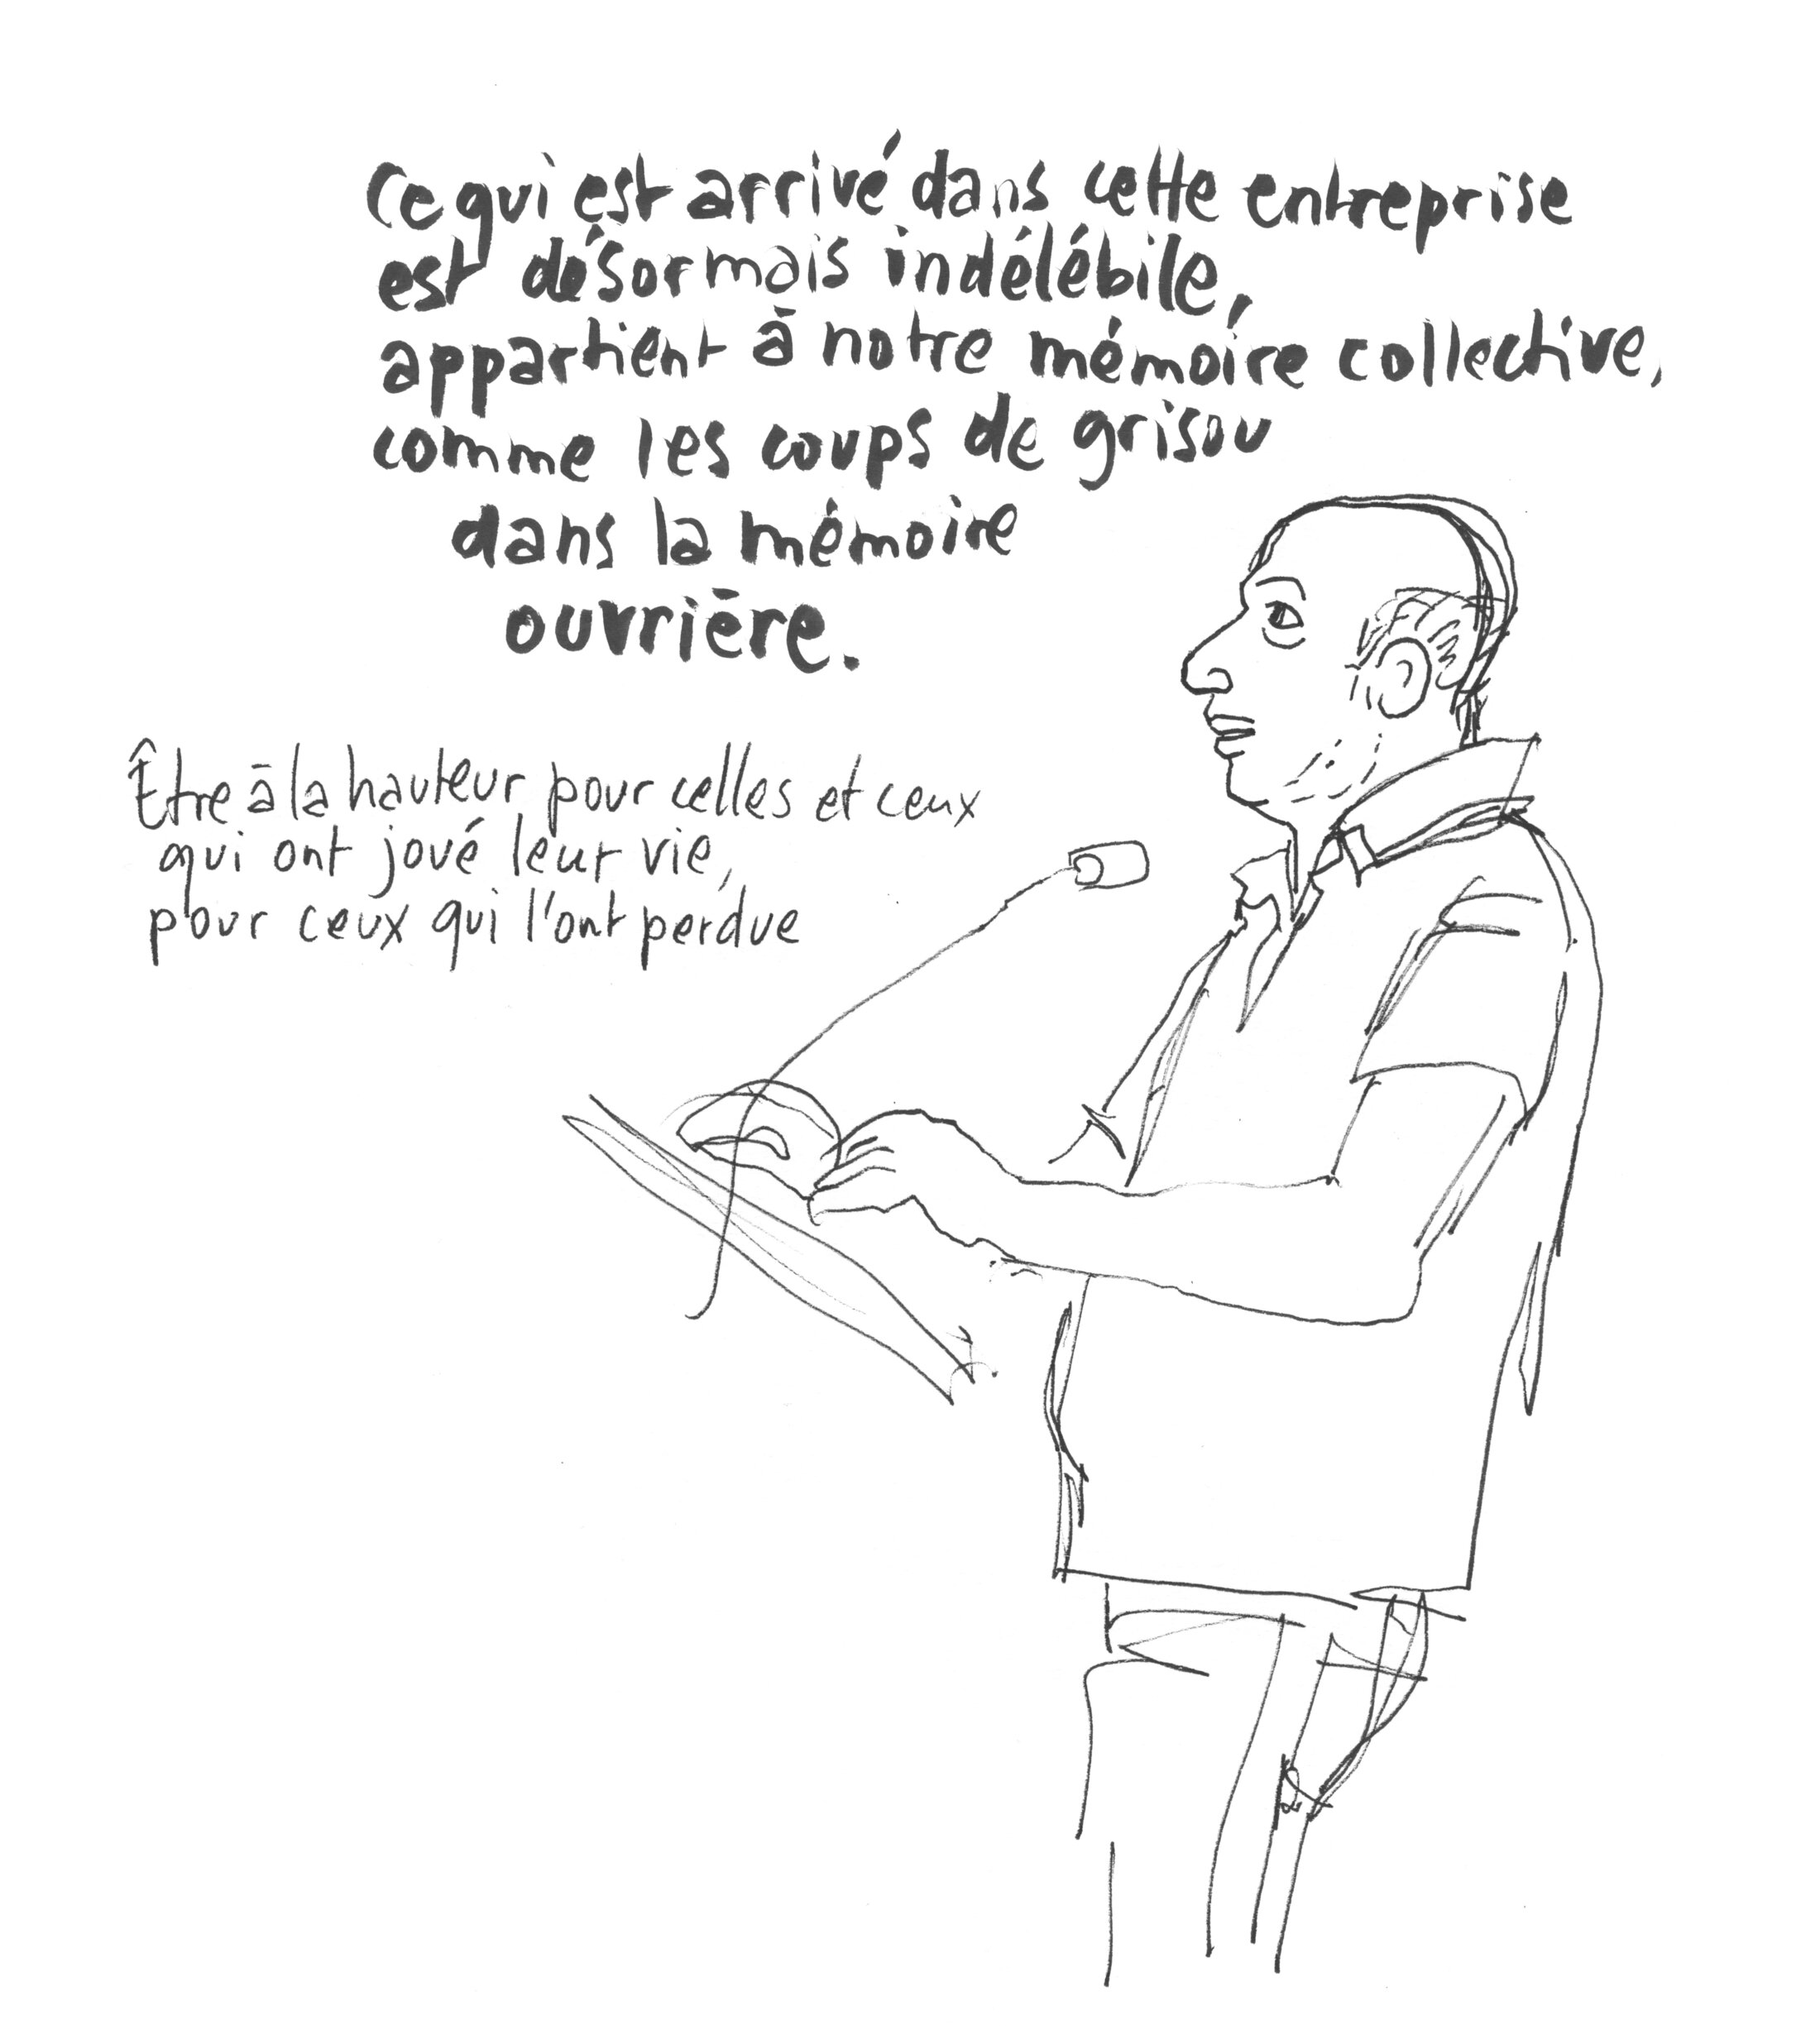 Ce qui est arrivé dans cette entreprise
est désormais indélébile,
appartient à notre mémoire collective,
comme les coups de grisou
dans la mémoire
ouvrière.
Être à la hauteur pour celles et ceux
qui ont joué leur vie,
pour ceux qui l'ont perdue